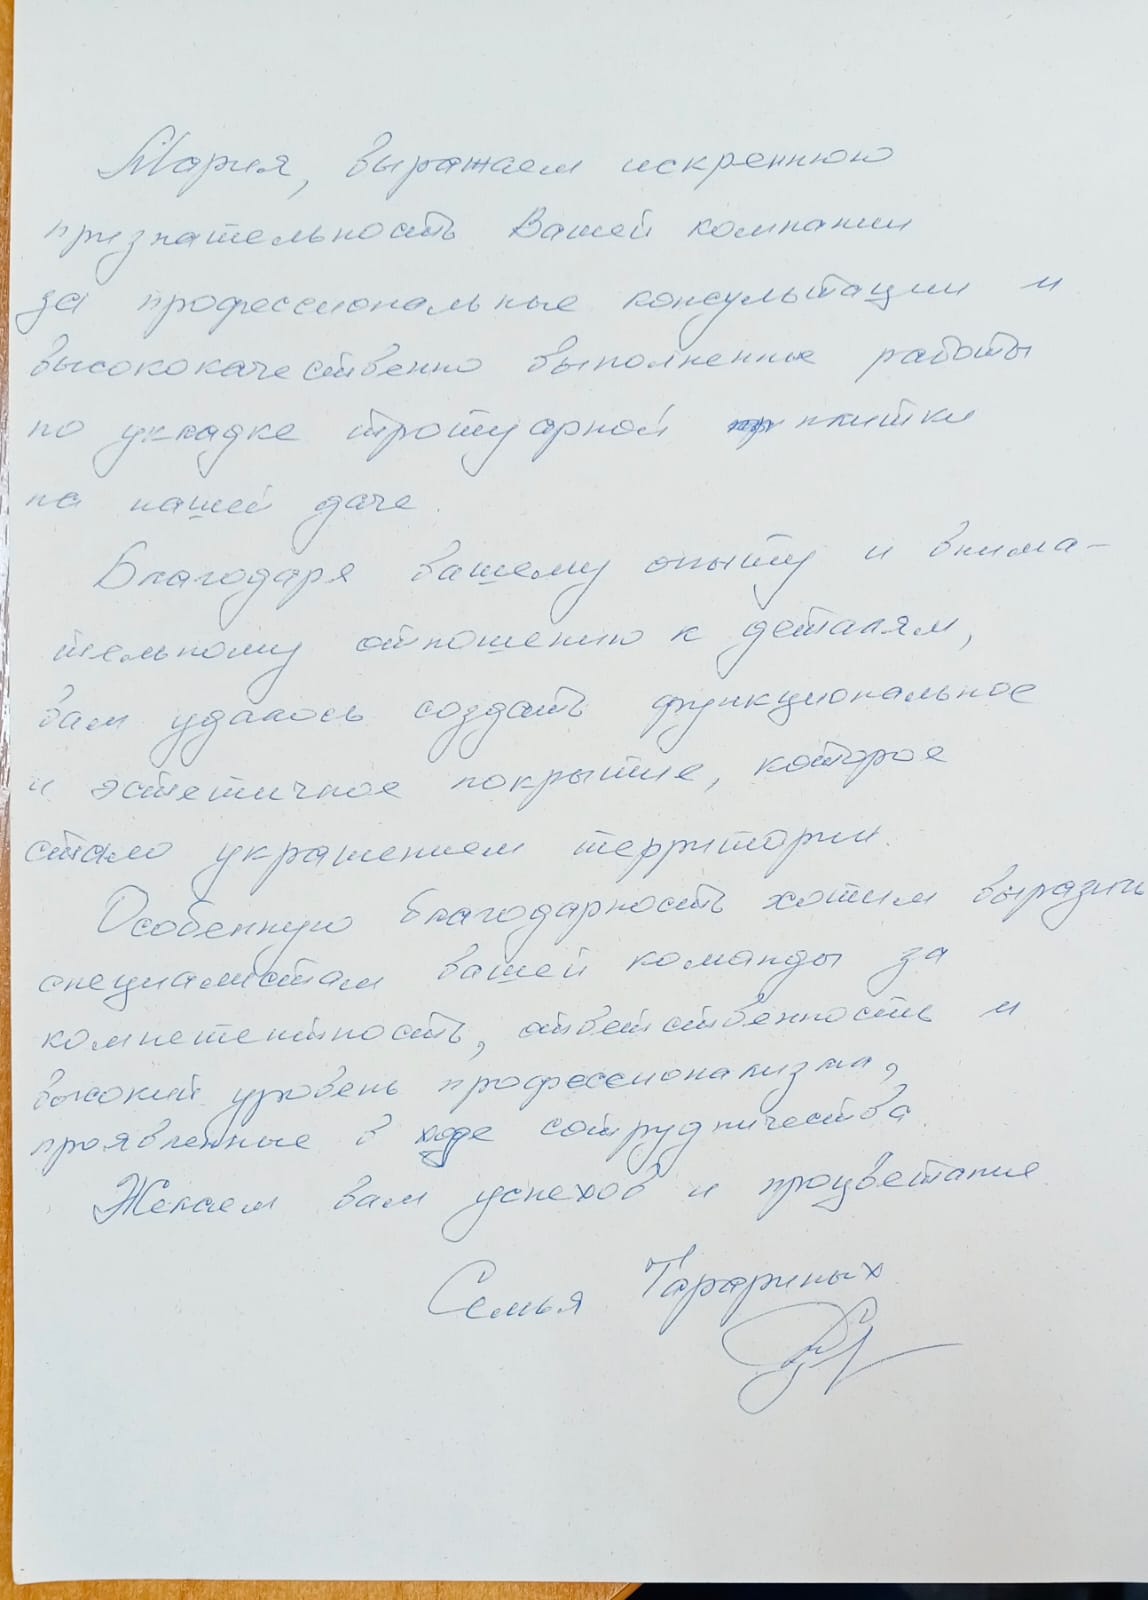 Мария, выражаем искреннюю
признательность Вашей компании
за профессиональные консультации и
высококачественно выполненные работы
по укладке тротуарной плитки
на нашей даче.
Благодаря вашему опыту и внима-
тельному отношению к деталям,
вам удалось создать функциональное
и эстетичное покрытие, которое
стало украшением территории.
Особенную благодарность хотим выразить
специалистам вашей команды за
компетентность, ответственность и
высокий уровень профессионализма,
проявленные в ходе сотрудничества.
Желаем вам успехов и процветания
Семья Тарариных